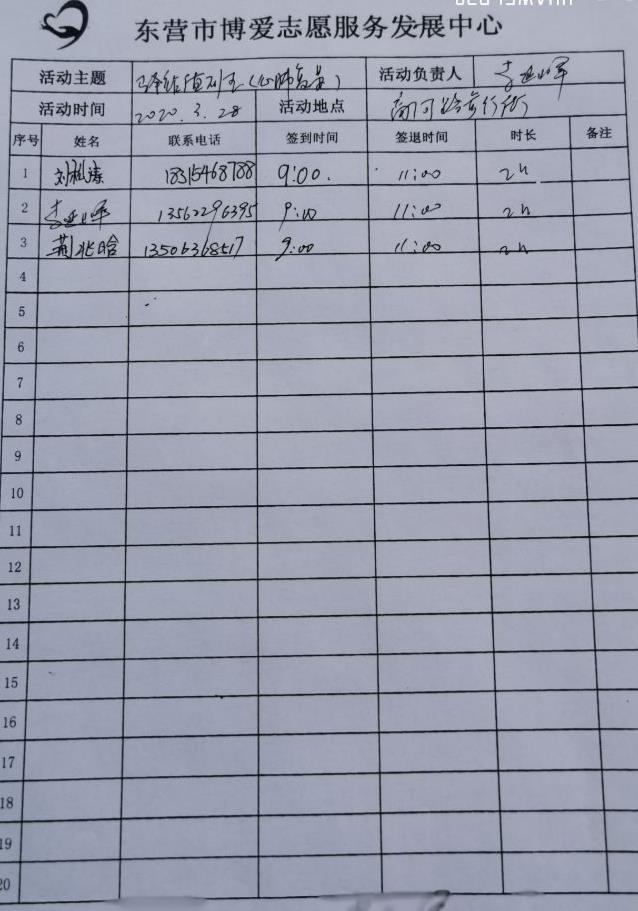 东营市博爱志愿服务发展中心
活动主题 (心肺复苏) 活动负责人 李
活动时间 2020.3.28 活动地点 商河路步行街
序号 姓名 联系电话 签到时间 签退时间 时长 备注
1 刘 18315468788 9:00. 11:00 2h
2 李 13562296395 9:00 11:00 2h
3 荆兆晗 13506368517 9:00 11:00 2h
4
5
6
7
8
9
10
11
12
13
14
15
16
17
18
19
20